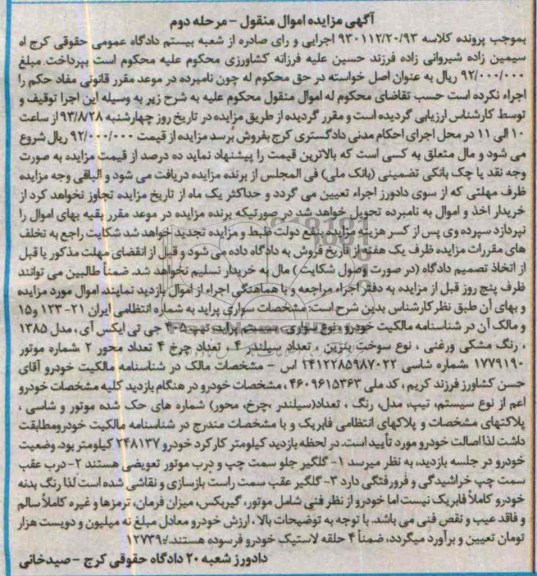 آگهی مزایده اموال منقول - مرحله دوم
بموجب پرونده کلاسه ۹۳۰۱۱۲/۲۰/۹۳ اجرایی و رای صادره از شعبه بیستم دادگاه عمومی حقوقی کرج اه
سیمین زاده شیروانی زاده فرزند حسین علیه فرزانه کشاورزی محکوم علیه محکوم است بپرداخت مبلغ
۹۲/۰۰۰/۰۰۰ ریال به عنوان اصل خواسته در حق محکوم له چون نامبرده در موعد مقرر قانونی مفاد حکم را
اجراء نکرده است حسب تقاضای محکوم له اموال منقول محکوم علیه به شرح زیر به وسیله این اجرا توقیف و
توسط کارشناس ارزیابی گردیده است و مقرر گردیده از طریق مزایده در تاریخ روز چهارشنبه ۹۳/۸/۲۸ از ساعت
۱۰ الی ۱۱ در محل اجرای احکام مدنی دادگستری کرج بفروش برسد مزایده از قیمت ۹۲/۰۰۰/۰۰۰ ریال شروع
می شود و مال متعلق به کسی است که بالاترین قیمت را پیشنهاد نماید ده درصد از قیمت مزایده به صورت
وجه نقد یا چک بانکی تضمینی (بانک ملی) فی المجلس از برنده مزایده دریافت می شود و الباقی وجه مزایده
ظرف مهلتی که از سوی دادورز اجراء تعیین می گردد و حداکثر یک ماه از تاریخ مزایده تجاوز نخواهد کرد از
خریدار اخذ و اموال به نامبرده تحویل خواهد شد در صورتیکه برنده مزایده در موعد مقرر بقیه بهای اموال را
نپردازد سپرده وی پس از کسر هزینه مزایده بنفع دولت ضبط و مزایده تجدید خواهد شد شکایت راجع به تخلف
های مقررات مزایده ظرف یک هفته از تاریخ فروش به دادگاه داده می شود و قبل از انقضای مهلت مذکور یا قبل
از اتخاذ تصمیم دادگاه (در صورت وصول شکایت) مال به خریدار تسلیم نخواهد شد. ضمناً طالبین می توانند
ظرف پنج روز قبل از مزایده به دفتر اجراء مراجعه و با هماهنگی اجراء از اموال بازدید نمایند. اموال مورد مزایده
و بهای آن طبق نظر کارشناس بدین شرح است: مشخصات سواری پراید به شماره انتظامی ایران ۲۱-۱۲۳ و ۱۵
و مالک آن در شناسنامه مالکیت خودرو، نوع سواری، سیستم پراید تیپ جی تی ایکس آی، مدل ۱۳۸۵
، رنگ مشکی ورغنی ، نوع سوخت بنزین ، تعداد سیلندر ۴ ، تعداد چرخ ۴ تعداد محور ۲ شماره موتور
۱۷۷۹۱۹۰ شماره شاسی ۱۴۱۲۲۸۵۹۸۷۰۲۲ اس - مشخصات مالک در شناسنامه مالکیت خودرو آقای
حسن کشاورز فرزند کریم ، کد ملی ۴۶۰۹۶۱۵۳۶۳ ، مشخصات خودرو در هنگام بازدید کلیه مشخصات خودرو
اعم از نوع سیستم، تیپ، مدل، رنگ ، تعداد(سیلندر ،چرخ، محور) شماره های حک شده موتور و شاسی ،
پلاکتهای مشخصات و پلاکهای انتظامی فابریک و با مشخصات مندرج در شناسنامه مالکیت خودرومطابقت
داشت لذا اصالت خودرو مورد تأیید است. در لحظه بازدید کیلومتر کارکرد خودرو ۲۴۸۱۳۷ کیلومتر بود. وضعیت
خودرو در جلسه بازدید، به نظر میرسد ۱- گلگیر جلو سمت چپ و درب موتور تعویضی هستند ۲- درب عقب
سمت چپ خراشیدگی و فرورفتگی دارد ۳- گلگیر عقب سمت راست بازسازی و نقاشی شده است لذا رنگ بدنه
خودرو کاملاً فابریک نیست اما خودرو از نظر فنی شامل موتور، گیربکس، میزان فرمان، ترمزها و غیره کاملاً سالم
و فاقد عیب و نقص فنی می باشد. با توجه به توضیحات بالا ، ارزش خودرو معادل مبلغ نه میلیون و دویست هزار
تومان تعیین و برآورد میگردد، ضمناً ۴ حلقه لاستیک خودرو فرسوده هستند./۱۲۷۳۹
دادورز شعبه ۲۰ دادگاه حقوقی کرج - صیدخانی